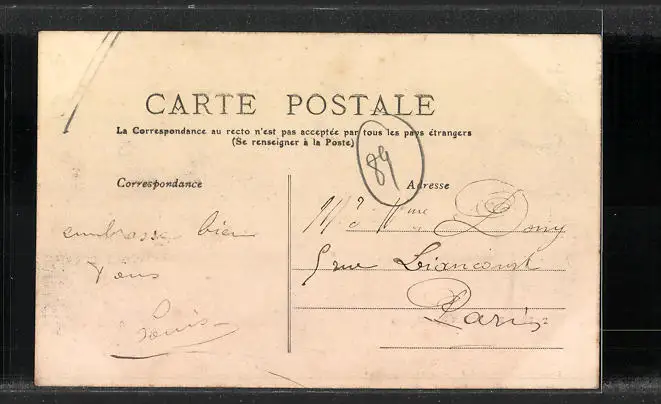 CARTE POSTALE
La Correspondance au recto n'est pas acceptée par tous les pays étrangers
(Se renseigner à la Poste)
89
Correspondance
Adresse
embrasse bien
Vous
Louis
Mr Mme Dony
5 rue Liancourt
Paris